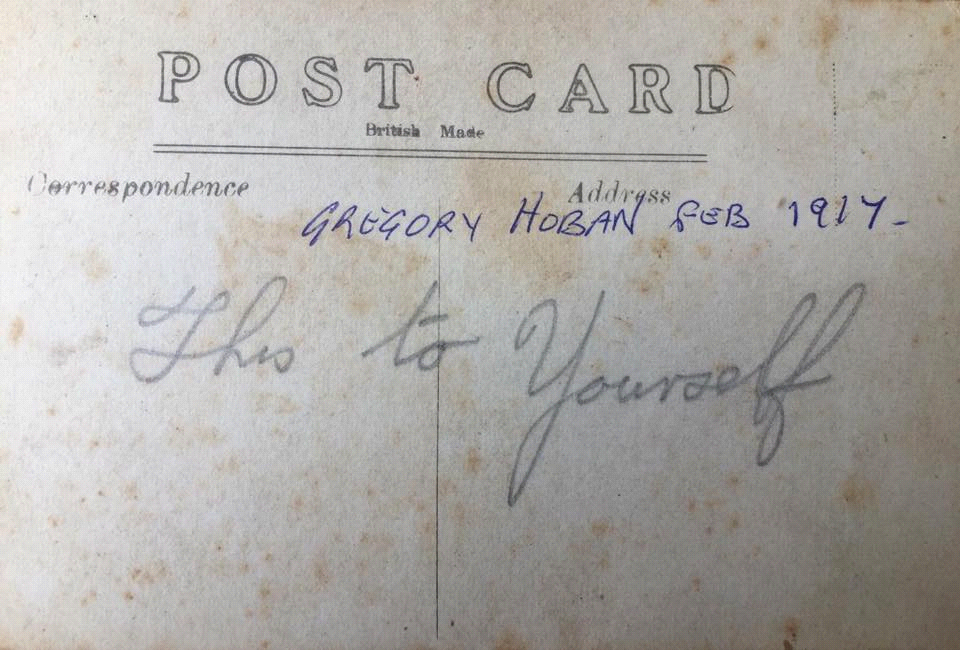 POST CARD
British Made
Correspondence
Address
GREGORY HOBAN FEB 1917-
This to Yourself